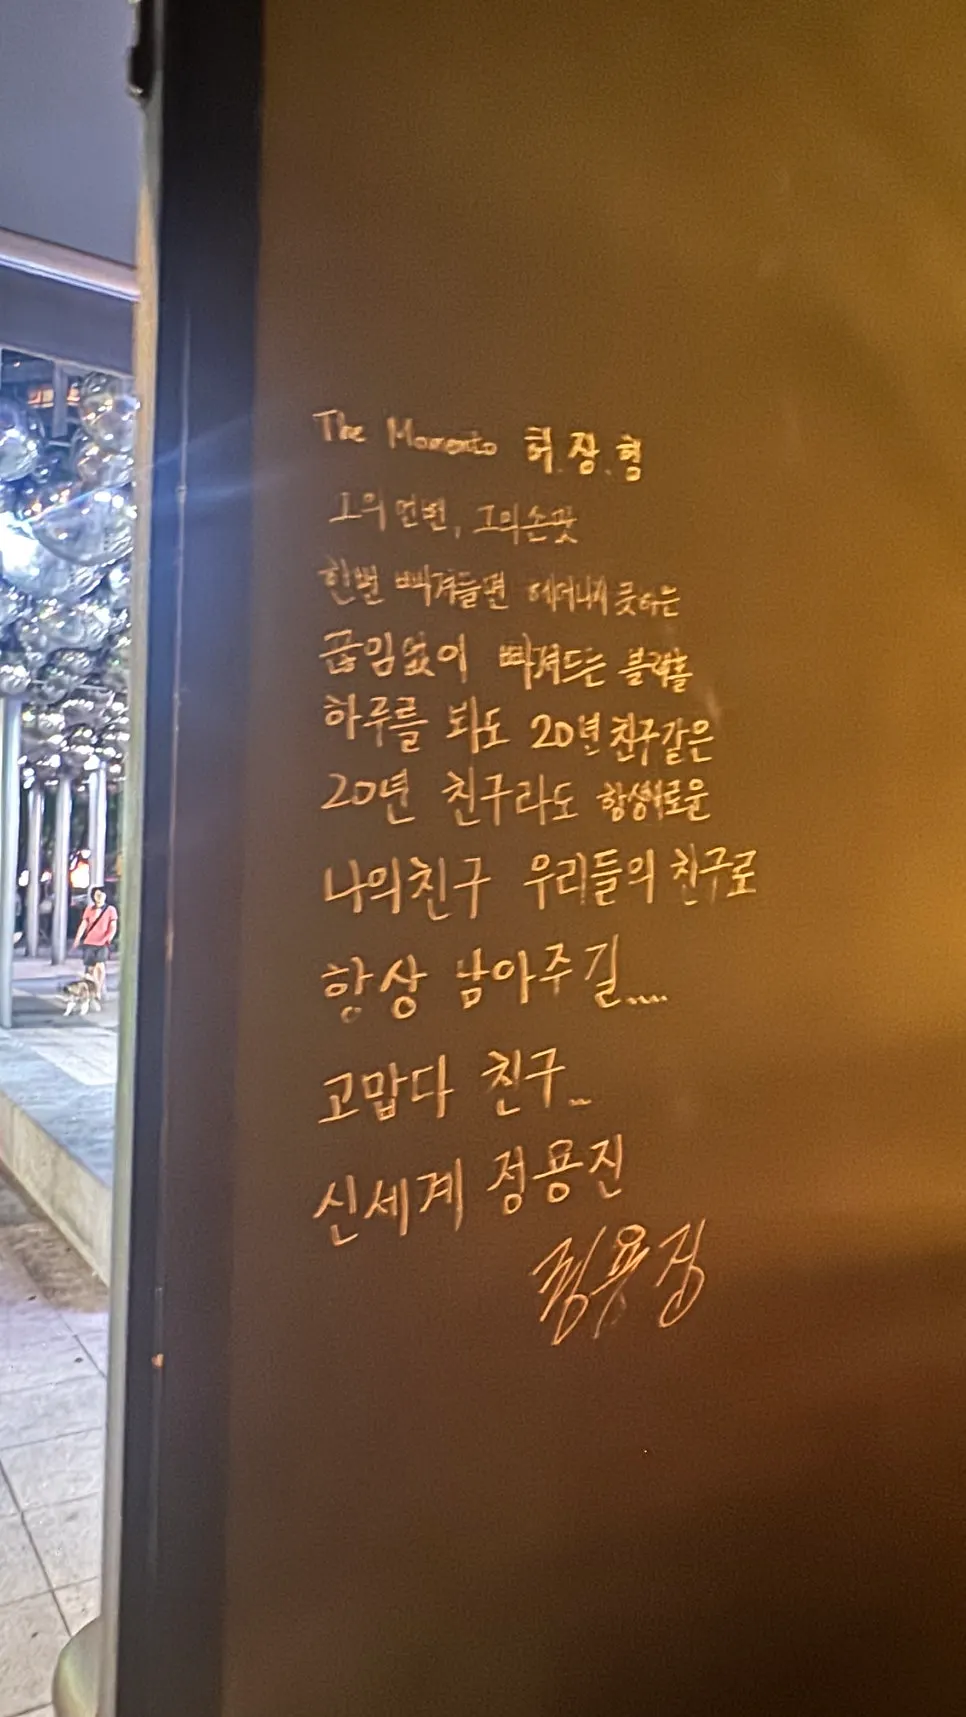 The Momento 허.장.형
그의 언변, 그의 손맛
한번 빠져들면 헤어나지 못하는
끊임없이 빠져드는 블랙홀
하루를 봐도 20년 친구같은
20년 친구라도 항상새로운
나의친구 우리들의 친구로
항상 남아주길....
고맙다 친구..
신세계 정용진
정용진